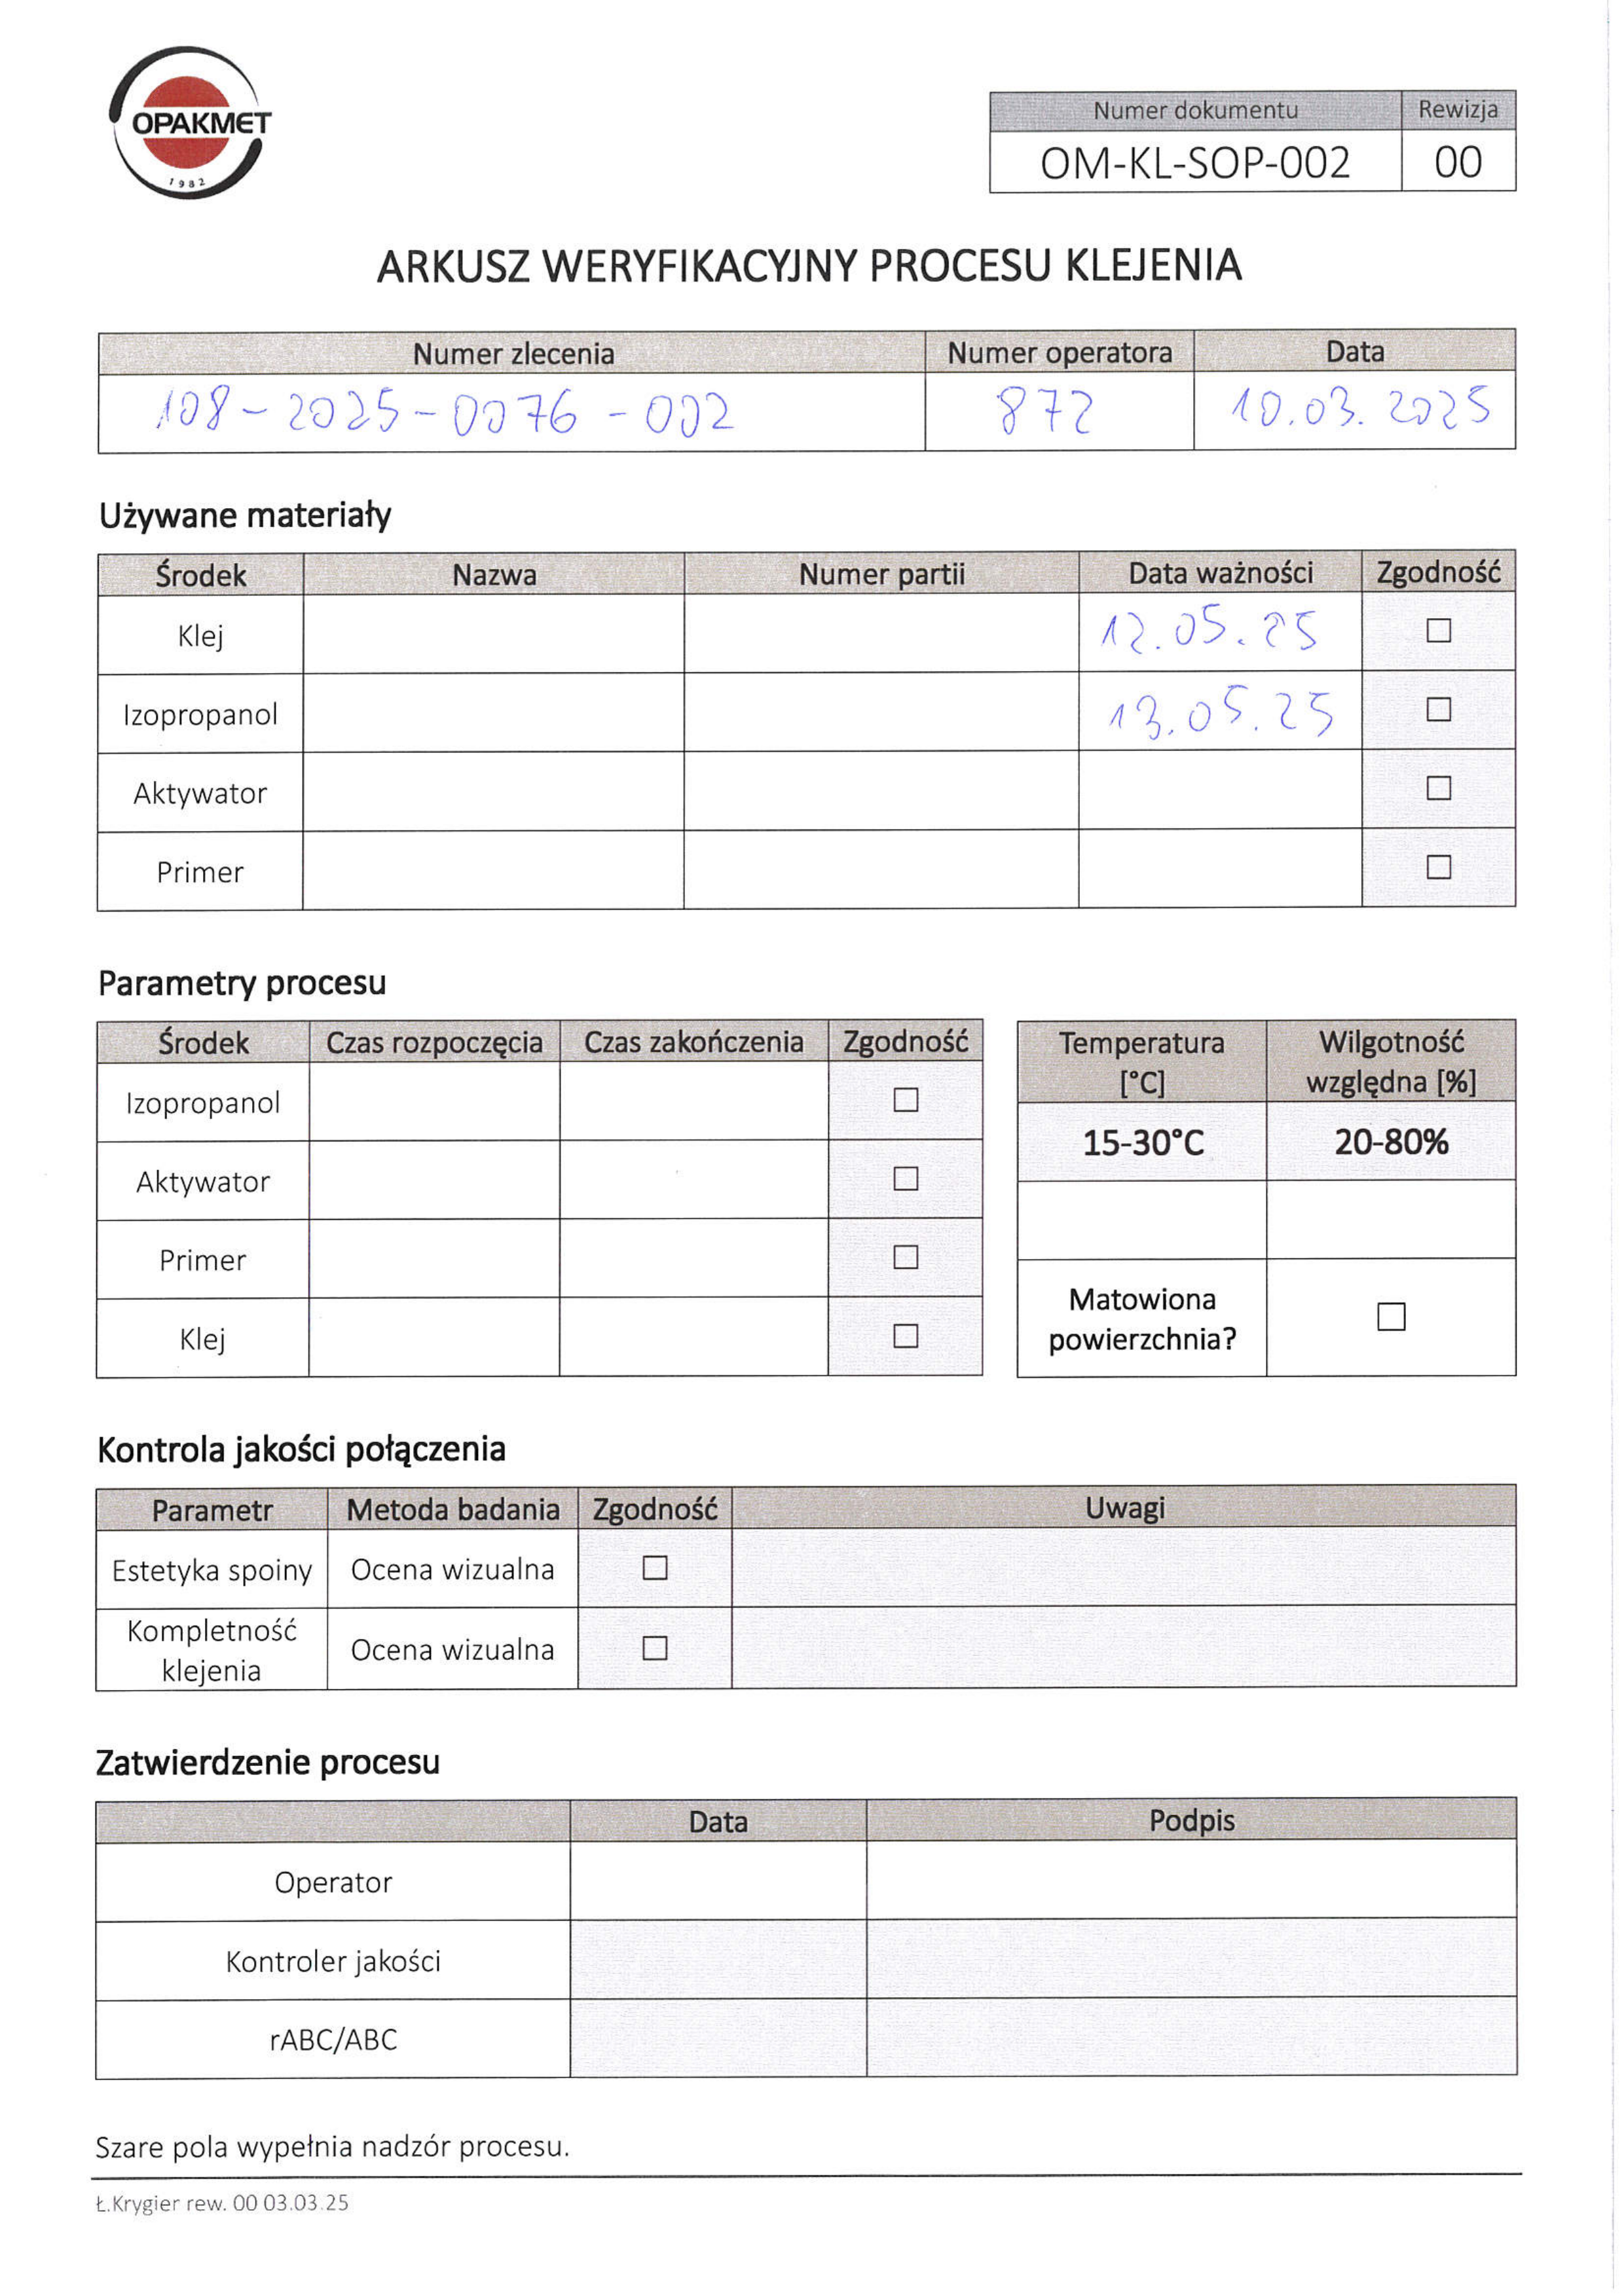 OPAKMET
1982
Numer dokumentu Rewizja
OM-KL-SOP-002 00
ARKUSZ WERYFIKACYJNY PROCESU KLEJENIA
Numer zlecenia Numer operatora Data
108-2025-0076-002 872 10.03.2025
Używane materiały
Środek Nazwa Numer partii Data ważności Zgodność
Klej 12.05.25 ☐
Izopropanol 13.05.25 ☐
Aktywator ☐
Primer ☐
Parametry procesu
Środek Czas rozpoczęcia Czas zakończenia Zgodność
Izopropanol ☐
Aktywator ☐
Primer ☐
Klej ☐
Temperatura [°C] Wilgotność względna [%]
15-30°C 20-80%
Matowiona powierzchnia? ☐
Kontrola jakości połączenia
Parametr Metoda badania Zgodność Uwagi
Estetyka spoiny Ocena wizualna ☐
Kompletność klejenia Ocena wizualna ☐
Zatwierdzenie procesu
Data Podpis
Operator
Kontroler jakości
rABC/ABC
Szare pola wypełnia nadzór procesu.
Ł.Krygier rew. 00 03.03.25